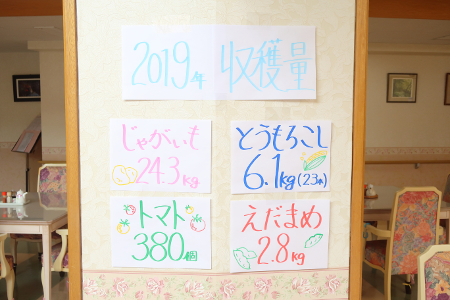 2019年 収穫量
じゃがいも
24.3kg
とうもろこし
6.1kg(23本)
トマト
380個
えだまめ
2.8kg